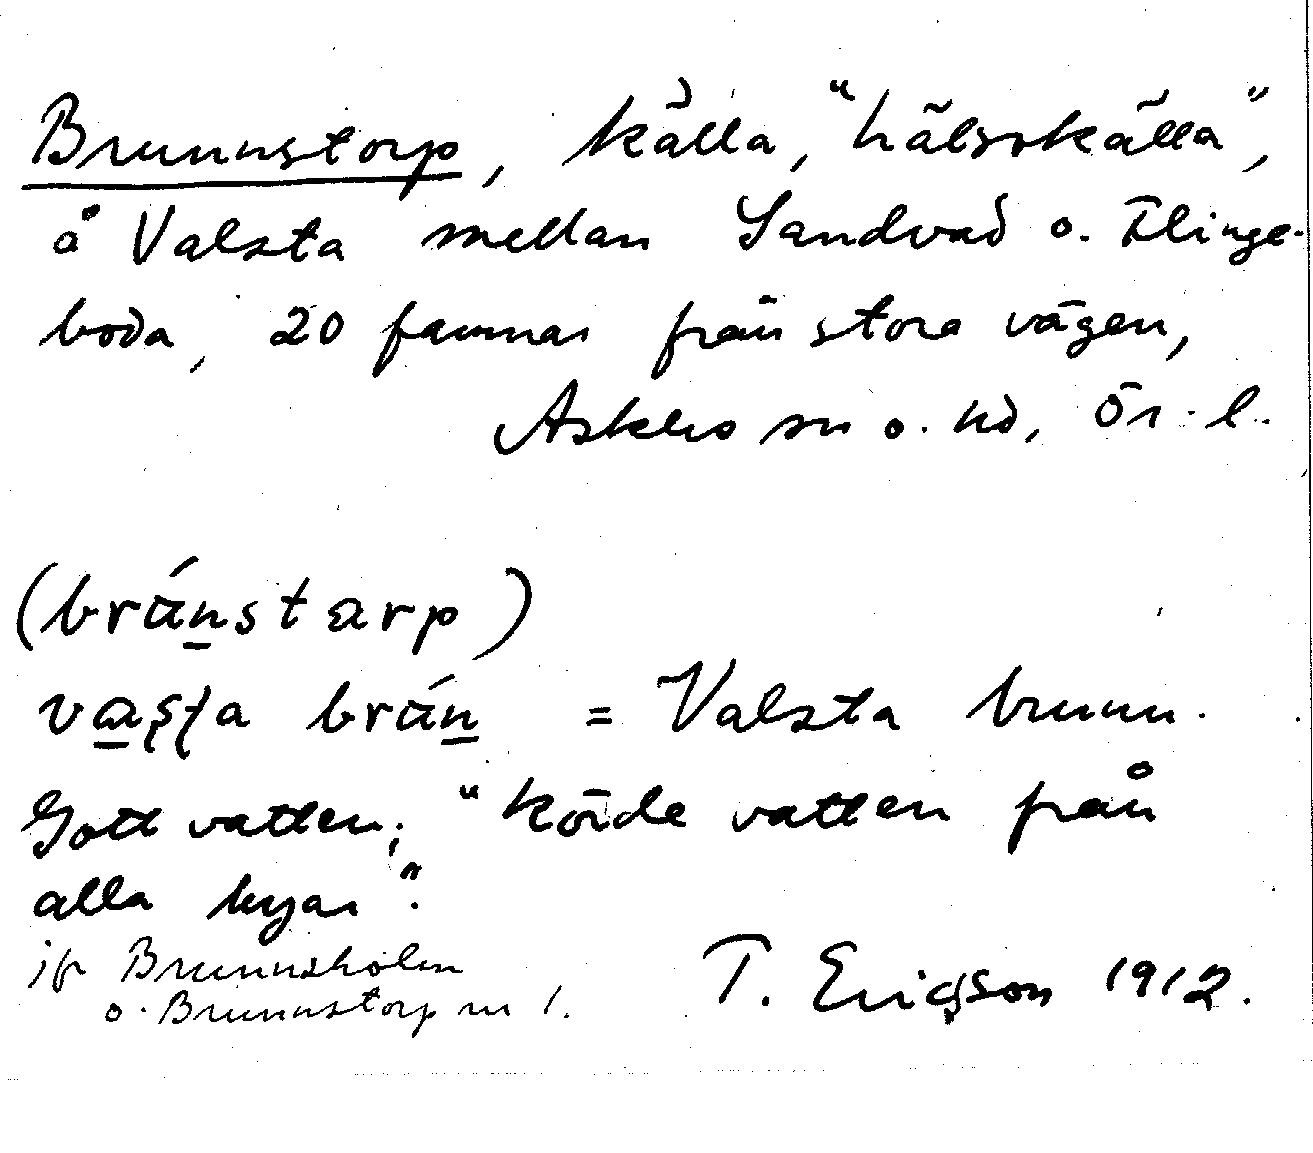 Brunnstorp, källa, "hälsokälla",
å Valsta mellan Sandvad o. Flinge-
boda, 20 famnar från stora vägen,
Askers sn o. hd, Ör. l.
(brún̲starp)
va̲s̨ţa brún̲ = Valsta brunn.
Gott vatten; "körde vatten från
alla byar".
jfr Brunnsholm
o. Brunnstorp nr 1.
T. Ericsson 1912.